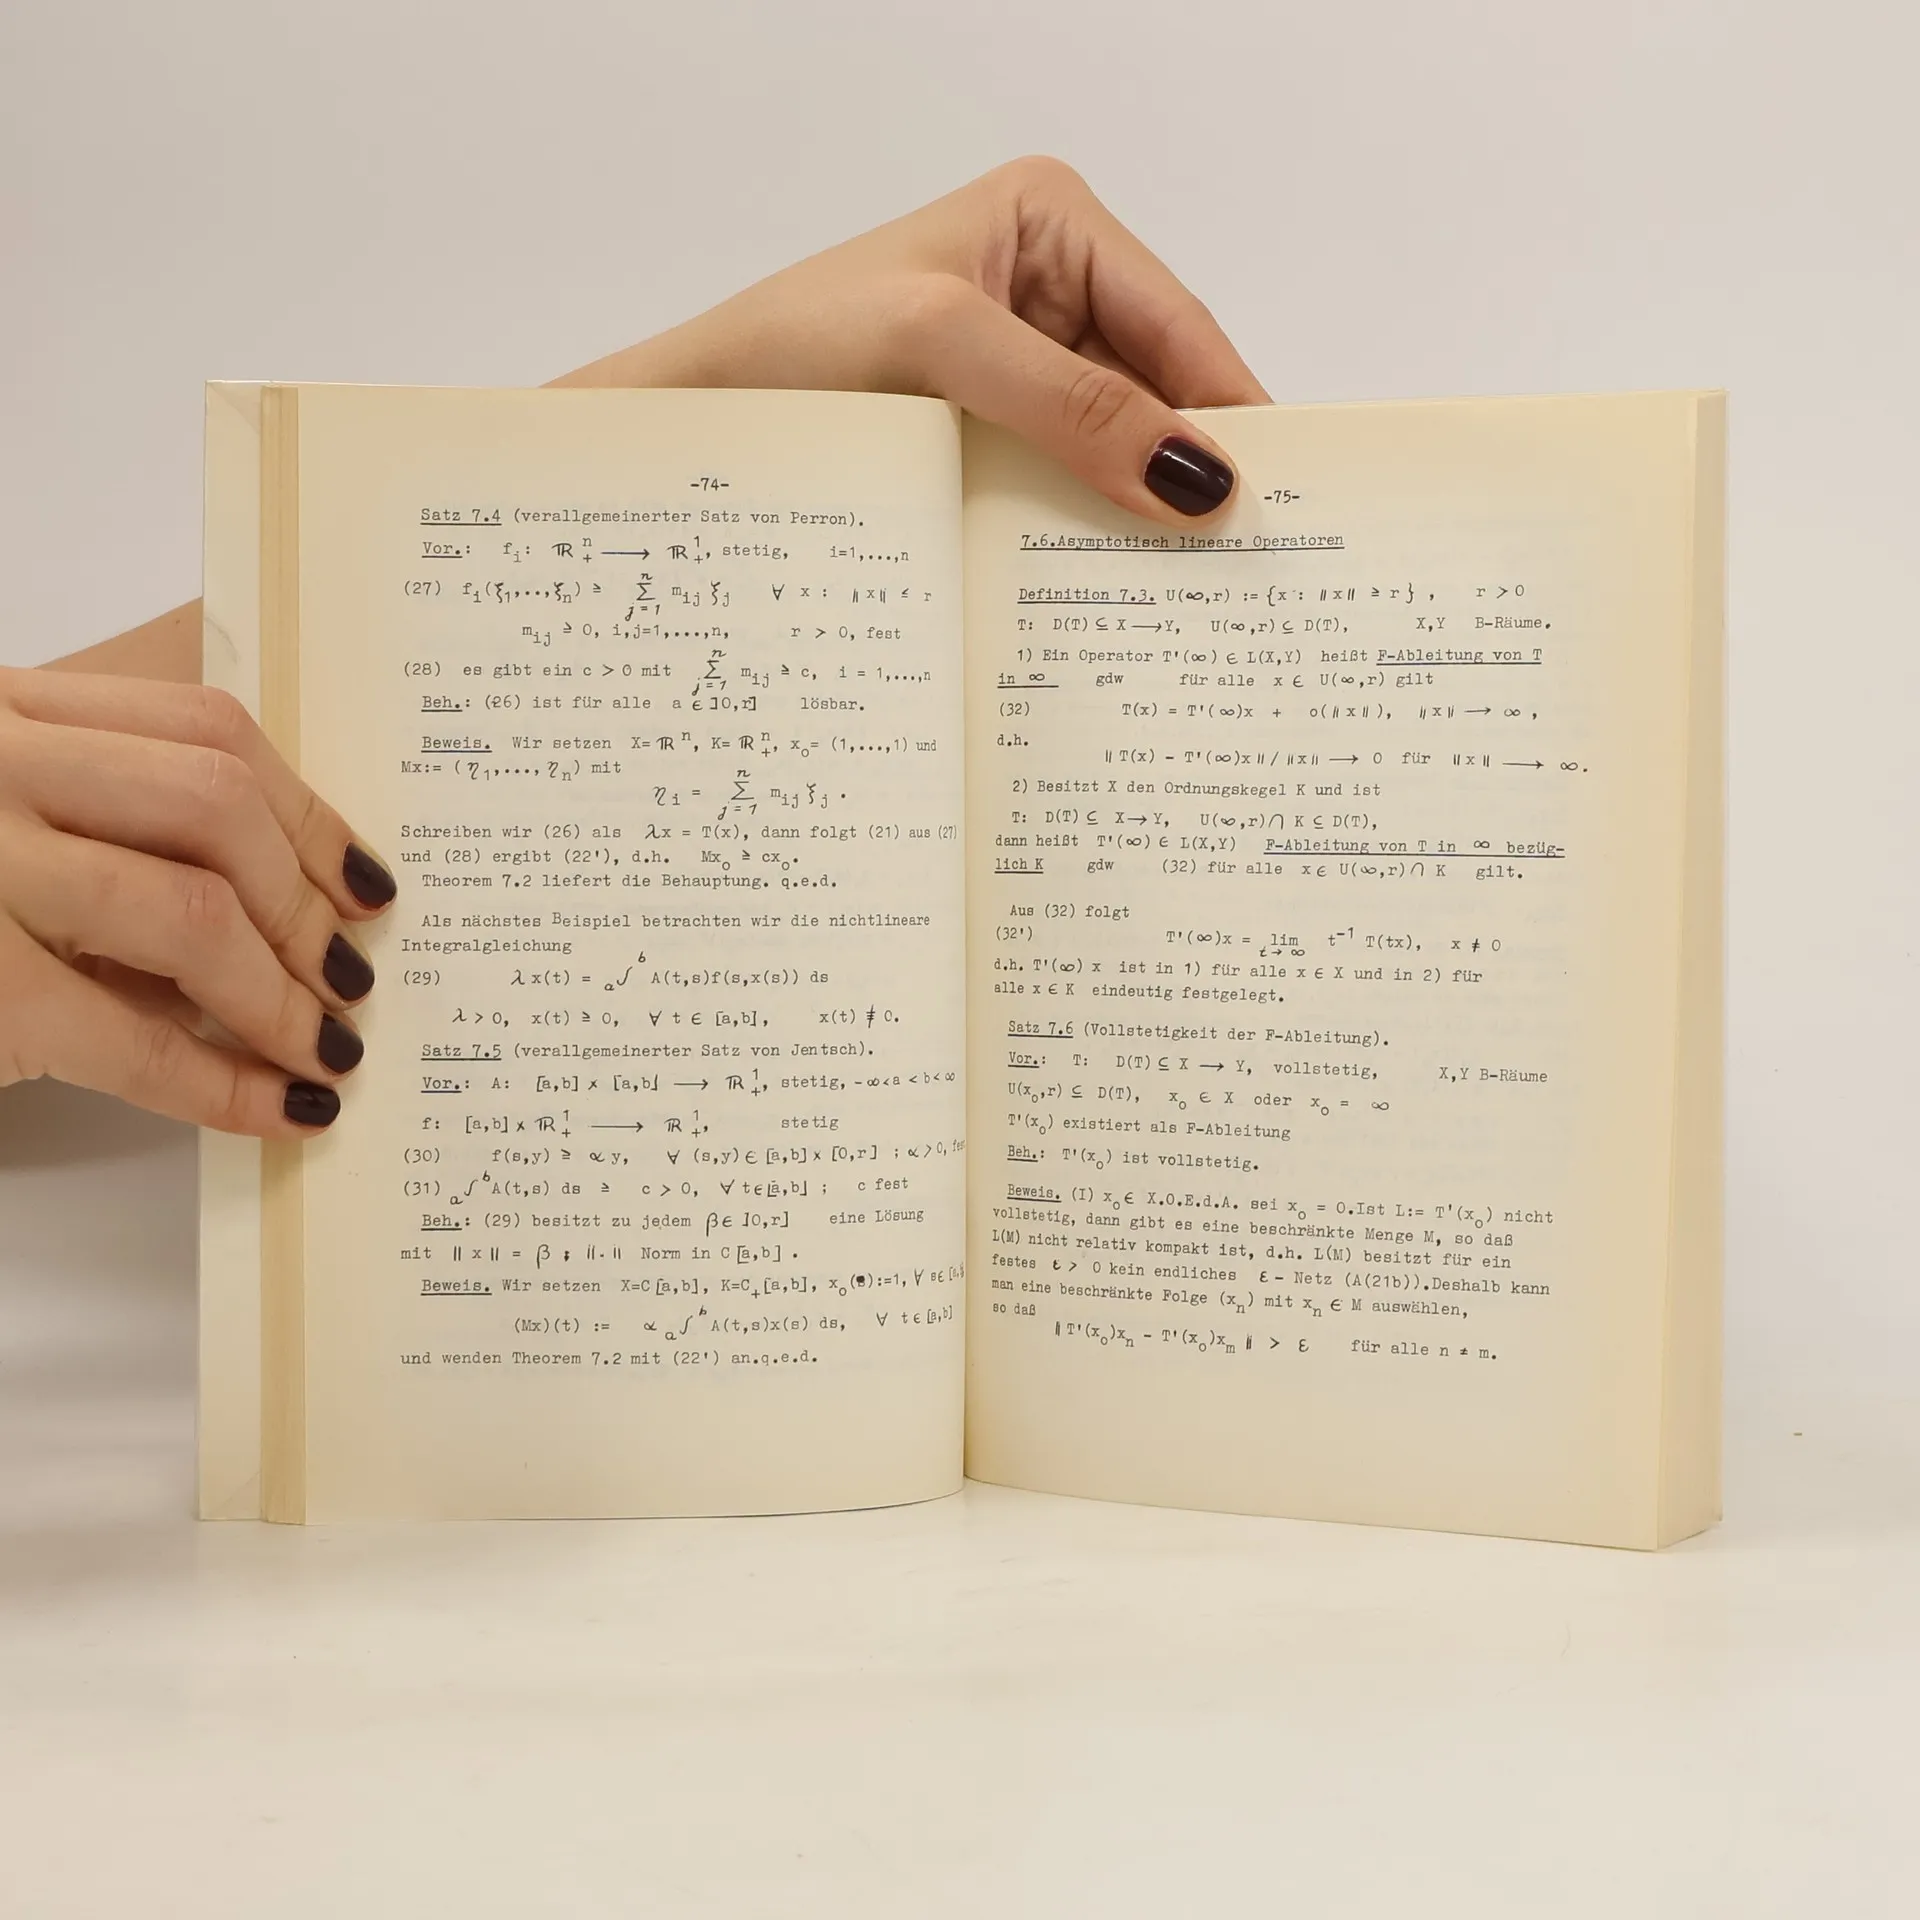 -74-
Satz 7.4 (verallgemeinerter Satz von Perron).
Vor.: f_i: ℝ^n_+ ⟶ ℝ^1_+, stetig, i=1,...,n
(27) f_i(ξ_1,..,ξ_n) ≥ ∑_{j=1}^n m_ij ξ_j ∀ x : ‖x‖ ≤ r
m_ij ≥ 0, i,j=1,...,n, r > 0, fest
(28) es gibt ein c > 0 mit ∑_{j=1}^n m_ij ≥ c, i = 1,...,n
Beh.: (26) ist für alle a ∈ ]0,r] lösbar.
Beweis. Wir setzen X= ℝ^n, K= ℝ^n_+, x_o= (1,...,1) und
Mx:= (η_1,..., η_n) mit
η_i = ∑_{j=1}^n m_ij ξ_j .
Schreiben wir (26) als λx = T(x), dann folgt (21) aus (27)
und (28) ergibt (22'), d.h. Mx_o ≥ cx_o.
Theorem 7.2 liefert die Behauptung. q.e.d.
Als nächstes Beispiel betrachten wir die nichtlineare
Integralgleichung
(29) λ x(t) = _a∫^b A(t,s)f(s,x(s)) ds
λ > 0, x(t) ≥ 0, ∀ t ∈ [a,b], x(t) ≢ 0.
Satz 7.5 (verallgemeinerter Satz von Jentsch).
Vor.: A: [a,b] × [a,b] ⟶ ℝ^1_+, stetig, -∞<a<b<∞
f: [a,b] × ℝ^1_+ ⟶ ℝ^1_+, stetig
(30) f(s,y) ≥ αy, ∀ (s,y) ∈ [a,b] × [0,r] ; α>0,
(31) _a∫^b A(t,s) ds ≥ c > 0, ∀ t∈[a,b] ; c fest
Beh.: (29) besitzt zu jedem β∈ ]0,r] eine Lösung
mit ‖x‖ = β ; ‖.‖ Norm in C[a,b] .
Beweis. Wir setzen X=C[a,b], K=C_+[a,b], x_o(s):=1, ∀ s∈
(Mx)(t) := α _a∫^b A(t,s)x(s) ds, ∀ t∈[a,b]
und wenden Theorem 7.2 mit (22') an.q.e.d.
-75-
7.6.Asymptotisch lineare Operatoren
Definition 7.3. U(∞,r) := {x : ‖x‖ ≥ r} , r > 0
T: D(T) ⊆ X ⟶ Y, U(∞,r) ⊆ D(T), X,Y B-Räume.
1) Ein Operator T'(∞) ∈ L(X,Y) heißt F-Ableitung von T
in ∞ gdw für alle x ∈ U(∞,r) gilt
(32) T(x) = T'(∞)x + o(‖x‖), ‖x‖ ⟶ ∞ ,
d.h.
‖T(x) - T'(∞)x‖/‖x‖ ⟶ 0 für ‖x‖ ⟶ ∞.
2) Besitzt X den Ordnungskegel K und ist
T: D(T) ⊆ X→Y, U(∞,r)∩ K ⊆ D(T),
dann heißt T'(∞) ∈ L(X,Y) F-Ableitung von T in ∞ bezüg-
lich K gdw (32) für alle x∈ U(∞,r)∩ K gilt.
Aus (32) folgt
(32') T'(∞)x = lim_{t→∞} t^{-1} T(tx), x ≠ 0
d.h. T'(∞) x ist in 1) für alle x ∈ X und in 2) für
alle x ∈ K eindeutig festgelegt.
Satz 7.6 (Vollstetigkeit der F-Ableitung).
Vor.: T: D(T) ⊆ X ⟶ Y, vollstetig, X,Y B-Räume
U(x_o,r) ⊆ D(T), x_o ∈ X oder x_o = ∞
T'(x_o) existiert als F-Ableitung
Beh.: T'(x_o) ist vollstetig.
Beweis. (I) x_o∈ X.O.E.d.A. sei x_o = 0.Ist L:= T'(x_o) nicht
vollstetig, dann gibt es eine beschränkte Menge M, so daß
L(M) nicht relativ kompakt ist, d.h. L(M) besitzt für ein
festes ε > 0 kein endliches ε - Netz (A(21b)).Deshalb kann
man eine beschränkte Folge (x_n) mit x_n ∈ M auswählen,
so daß
‖T'(x_o)x_n - T'(x_o)x_m‖ > ε für alle n ≠ m.